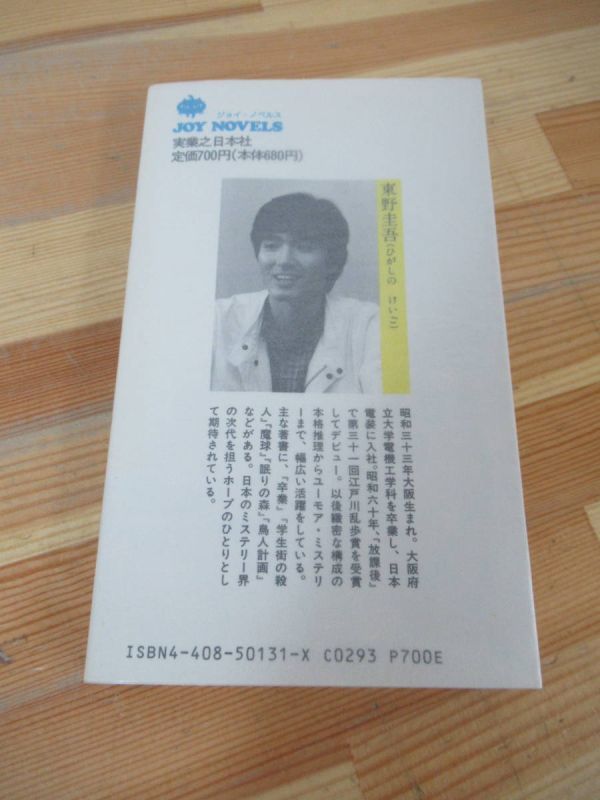 ジョイ・ノベルス
JOY NOVELS
実業之日本社
定価700円(本体680円)
東野圭吾(ひがしの けいご)
昭和三十三年大阪生まれ。大阪府
立大学電機工学科を卒業し、日本
電装に入社。昭和六十年、「放課後」
で第三十一回江戸川乱歩賞を受賞
してデビュー。以後緻密な構成の
本格推理からユーモア・ミステリ
ーまで、幅広い活躍をしている。
主な著書に、「卒業」「学生街の殺
人」「魔球」「眠りの森」「鳥人計画」
などがある。日本のミステリー界
の次代を担うホープのひとりとし
て期待されている。
ISBN4-408-50131-X C0293 P700E